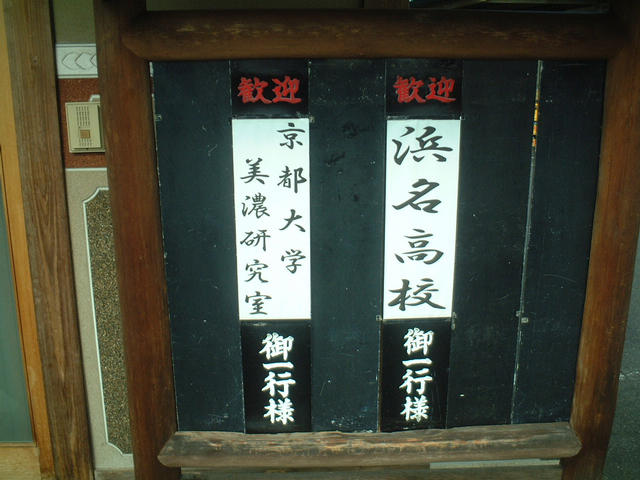 歓迎
浜名高校
御一行様
歓迎
京都大学
美濃研究室
御一行様